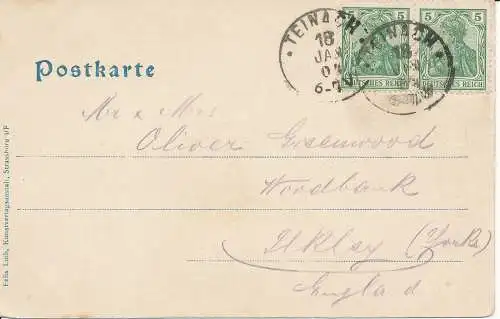 5 5
DEUTSCHES REICH DEUTSCHES REICH
TEINACH TEINACH
18 18
JAN
6-7
Postkarte
Mr & Mrs
Oliver Greenwood
Woodbank
Ilkley (Yorks)
England
Felix Luib, Kunstverlagsanstalt, Strassburg i/E